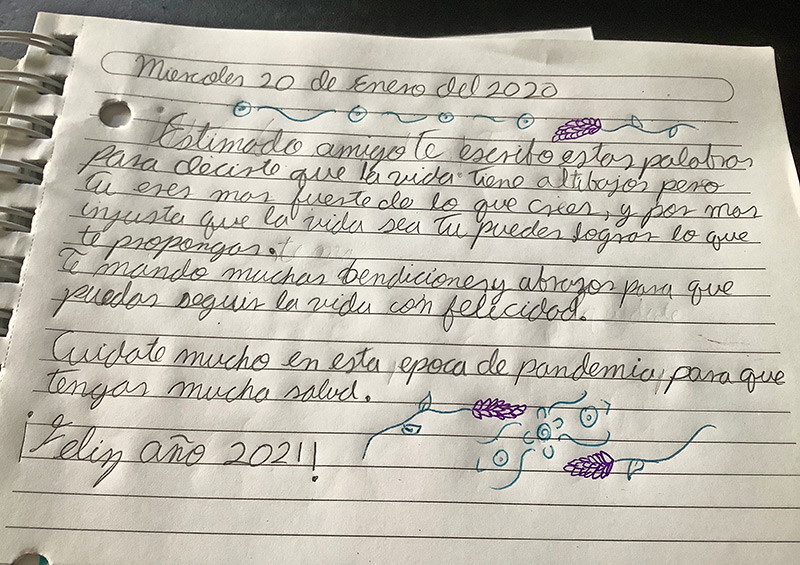 Miercoles 20 de Enero del 2020
Estimado amigo Te escribo estas palabras
para decirte que la vida tiene altibajos pero
Tu eres mas fuerte de lo que crees, y por mas
injusta que la vida sea Tu puedes lograr lo que
te propongas.
Te mando muchas bendiciones y abrazos para que
puedas seguir la vida con felicidad.
Cuidate mucho en esta epoca de pandemia, para que
tengas mucha salud.
¡Feliz año 2021!